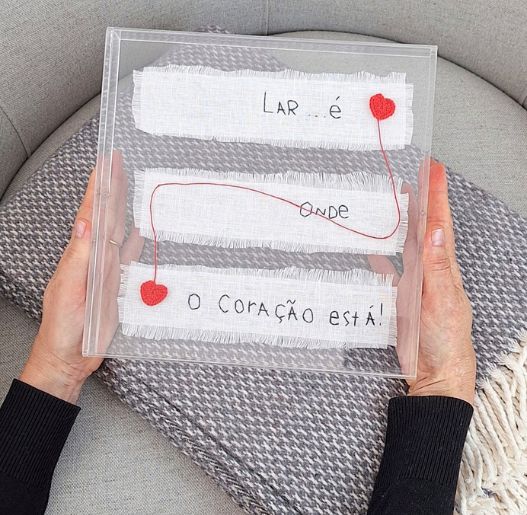 LAR ... é
ONDE
O CORAÇÃO ESTÁ!